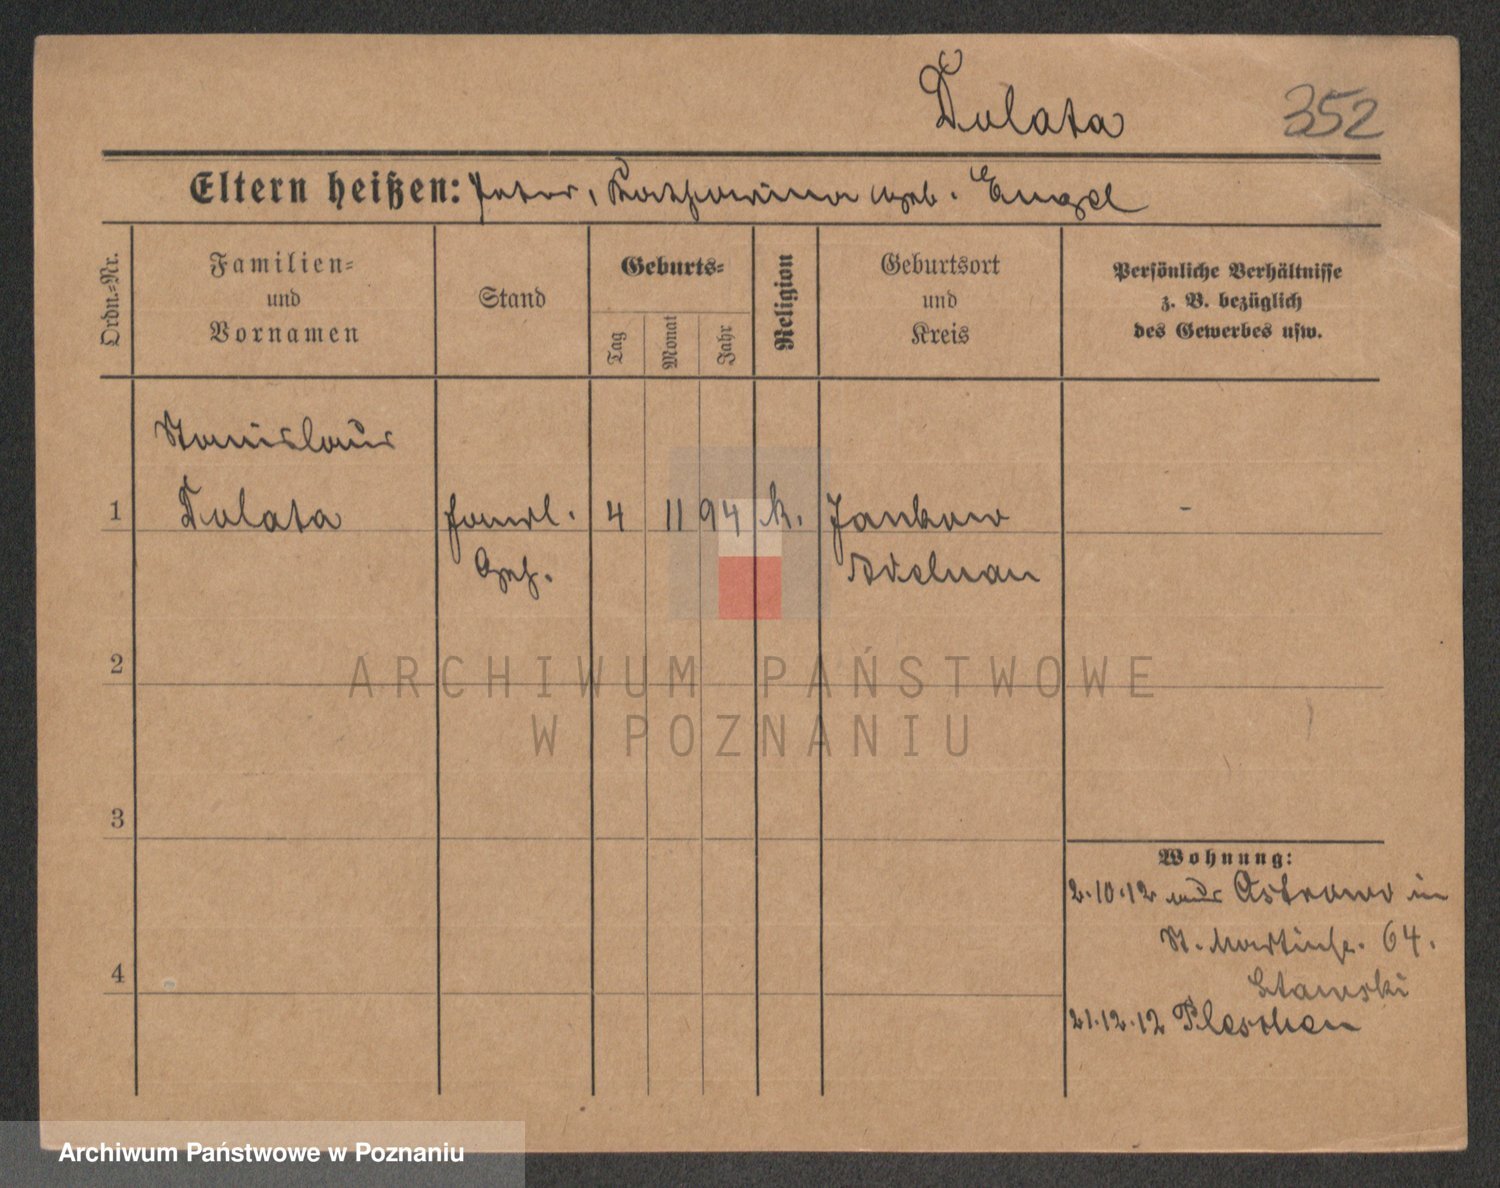 Dolata
352
Eltern heißen: Peter, Katharina geb. Engel
Ordn.-Nr.
Familien-
und
Vornamen
Stand
Geburts-
Tag
Monat
Jahr
Religion
Geburtsort
und
Kreis
Persönliche Verhältnisse
z. B. bezüglich
des Gewerbes usw.
Stanislaus
1 Dolata
4 11 94 k. Jankow -
Adelnau
2
3
4
Wohnung:
2.10.12 aus Ostrowo in
St. Martinstr. 64.
Stawski
21.12.12 Pleschen
ARCHIWUM PAŃSTWOWE
W POZNANIU
Archiwum Państwowe w Poznaniu